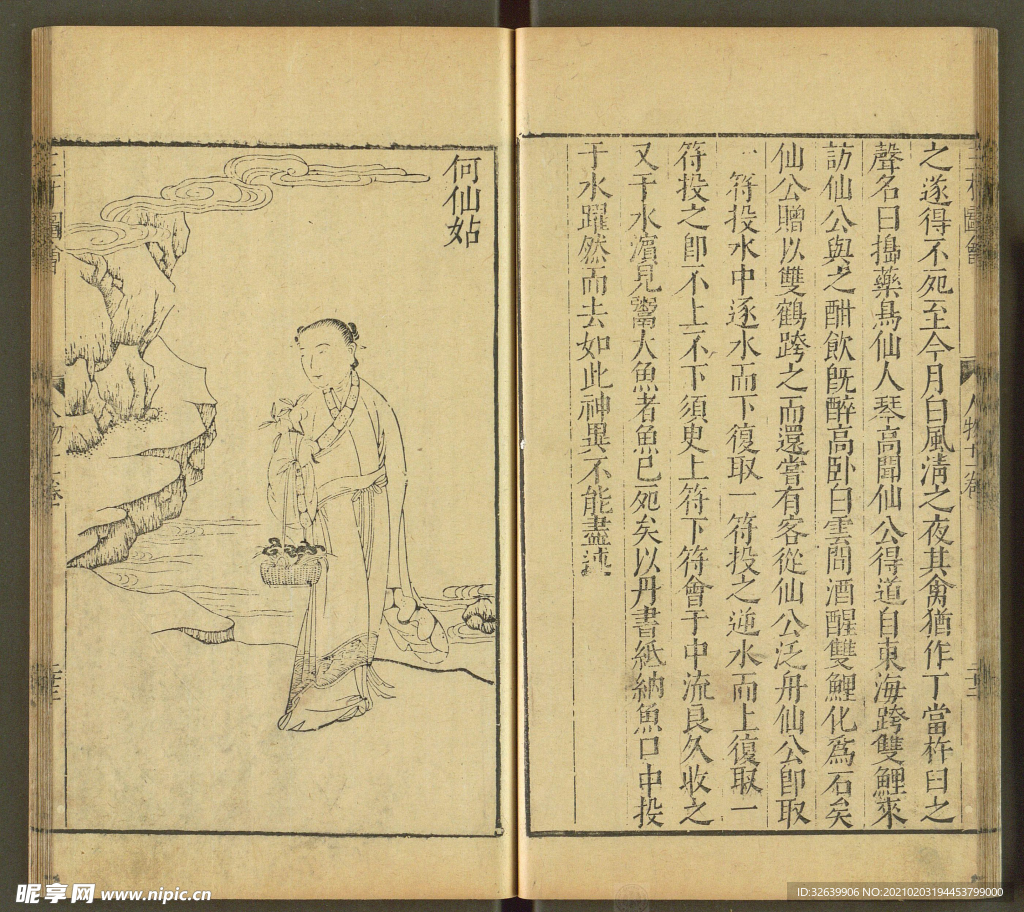 之遂得不死至今月白風清之夜其禽猶作丁當杵臼之
聲名曰搗藥鳥仙人琴高聞仙公得道自東海跨雙鯉來
訪仙公與之酣飲旣醉高卧白雲間酒醒雙鯉化爲石矣
仙公贈以雙鶴跨之而還嘗有客從仙公泛舟仙公卽取
一符投水中逐水而下復取一符投之逆水而上復取一
符投之卽不上不下須臾上符下符會于中流良久收之
又于水濱見鬻大魚者魚已死矣以丹書紙納魚口中投
于水躍然而去如此神異不能盡述
三才圖會
人物十一卷
何仙姑
昵享网 www.nipic.cn
ID:32639906 NO:20210203194453799000